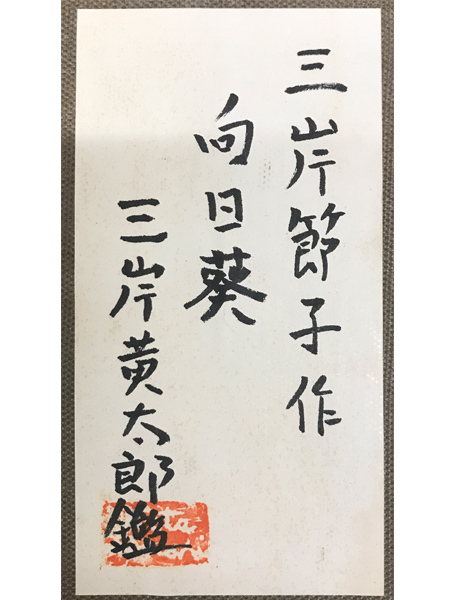 三岸節子作
向日葵
三岸黄太郎鑑